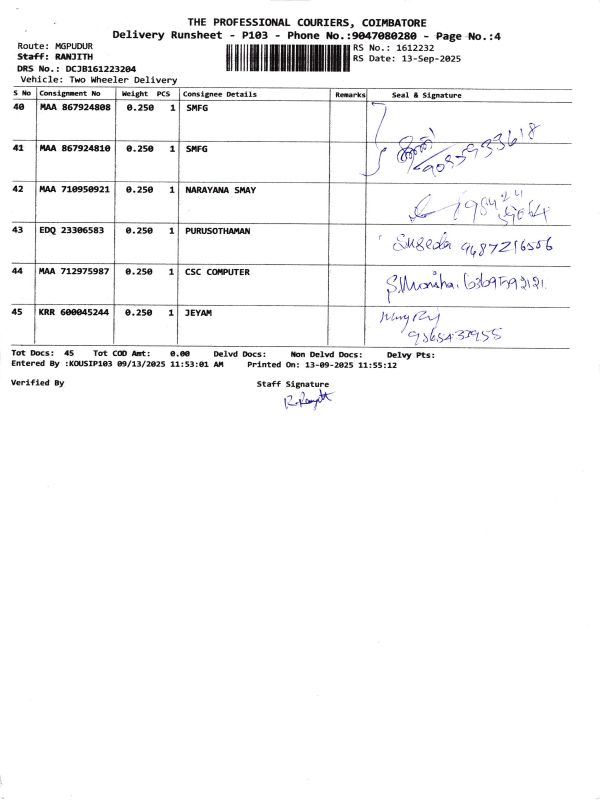 THE PROFESSIONAL COURIERS, COIMBATORE
Delivery Runsheet - P103 - Phone No.:9047080280 - Page No.:4
Route: MGPUDUR RS No.: 1612232
Staff: RANJITH RS Date: 13-Sep-2025
DRS No.: DCJB161223204
Vehicle: Two Wheeler Delivery
S No Consignment No Weight PCS Consignee Details Remarks Seal & Signature
40 MAA 867924808 0.250 1 SMFG
41 MAA 867924810 0.250 1 SMFG
42 MAA 710950921 0.250 1 NARAYANA SMAY
43 EDQ 23306583 0.250 1 PURUSOTHAMAN 9487216506
44 MAA 712975987 0.250 1 CSC COMPUTER S.Monisha. 6369592121
45 KRR 600045244 0.250 1 JEYAM
Tot Docs: 45 Tot COD Amt: 0.00 Delvd Docs: Non Delvd Docs: Delvy Pts:
Entered By :KOUSIP103 09/13/2025 11:53:01 AM Printed On: 13-09-2025 11:55:12
Verified By Staff Signature